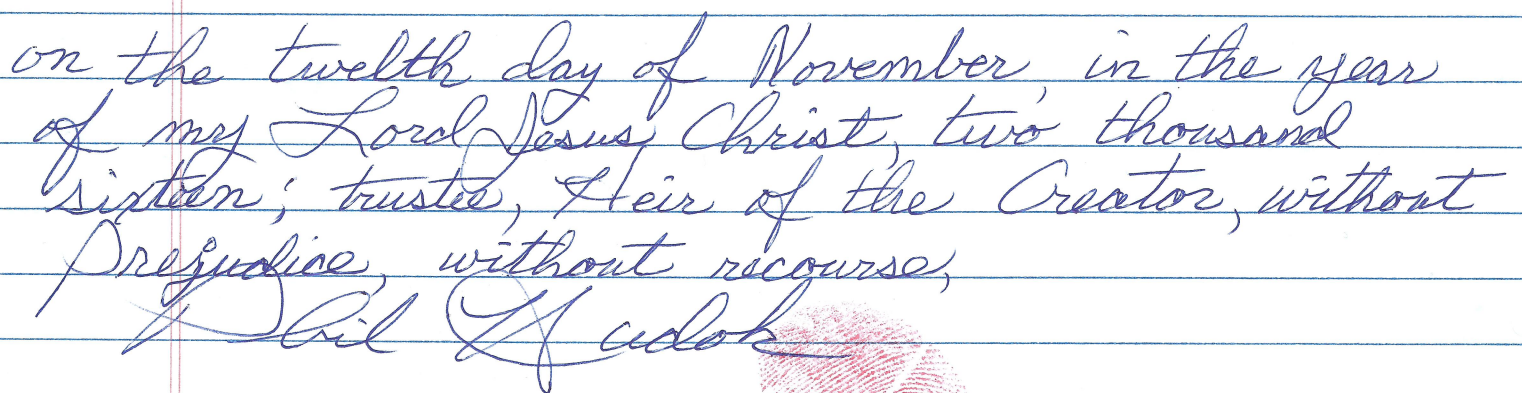 on the twelth day of November, in the year
of my Lord Jesus Christ, two thousand
sixteen; trustee, Heir of the Creator, without
Prejudice, without recourse,
Phil Hudok